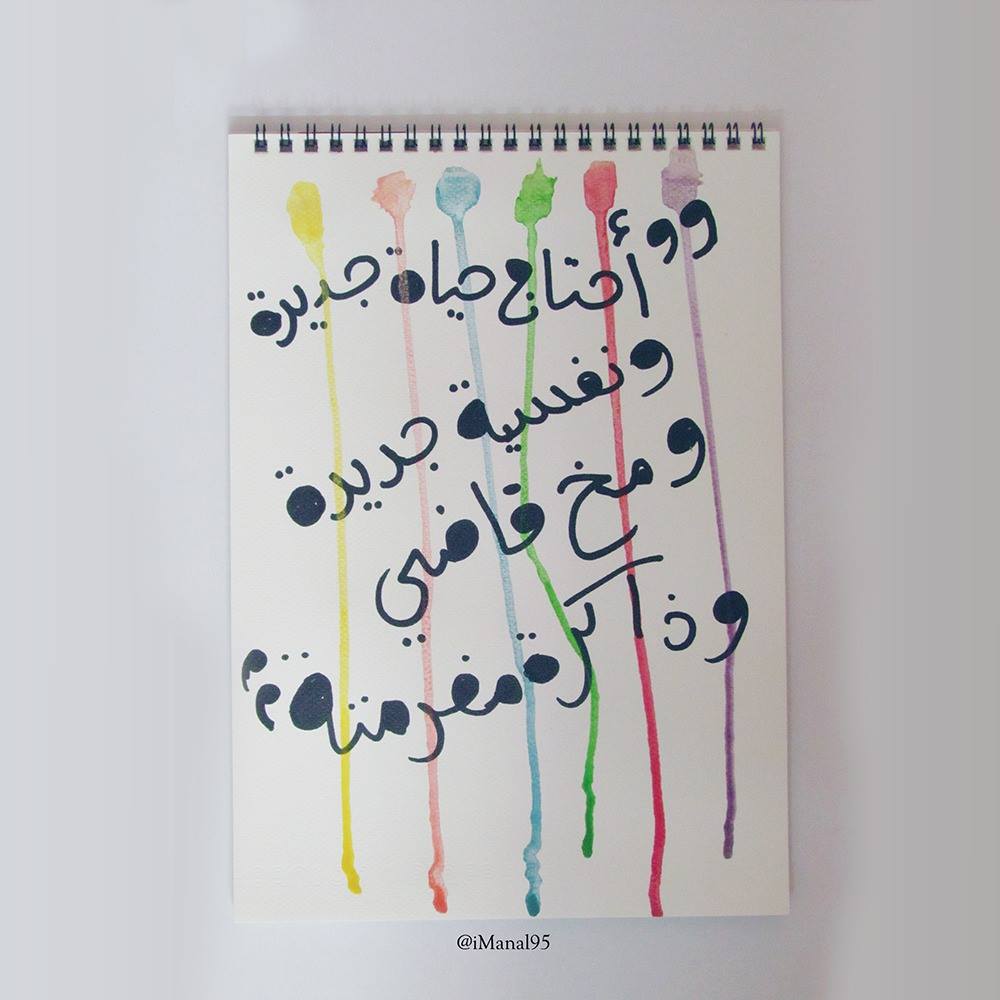 "أحتاج حياة جديدة
ونفسية جديدة
ومخ فاضي
وذاكرة مفرمتة"
@iManal95